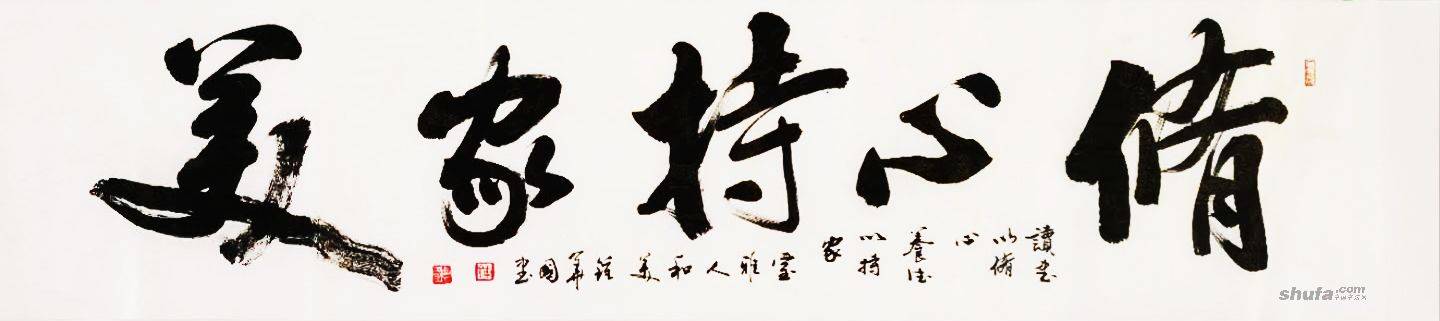 脩心持家美
讀書
以脩
心
養德
以持
家
室雅人和美
國華書
shufa.com